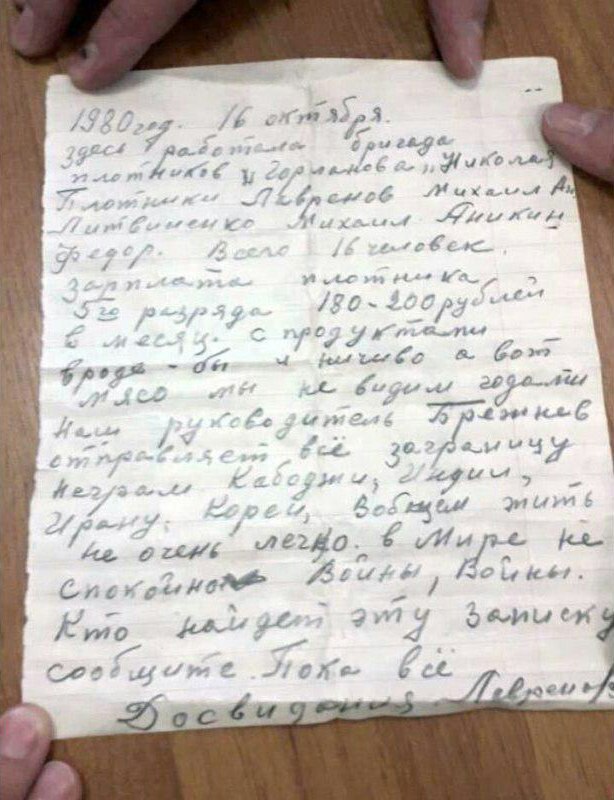 1980 год. 16 октября.
Здесь работала бригада
плотников „Горланова„ Николая
Плотники Лавренов Михаил Ан.
Литвиненко Михаил. Аникин
Федор. Всего 16 человек.
Зарплата плотника
5го разряда 180-200 рублей
в месяц. с продуктами
вроде-бы и ничиво а вот
мясо мы не видим годами
Наш руководитель Брежнев
отправляет всё заграницу
Неграм. Кабоджи, Индии,
Ирану. Кореи, Вобщем жить
не очень легко. в Мире не
спокойно Войны, Войны.
Кто найдет эту записку
сообщите. Пока всё
Досвидания. Лавренов